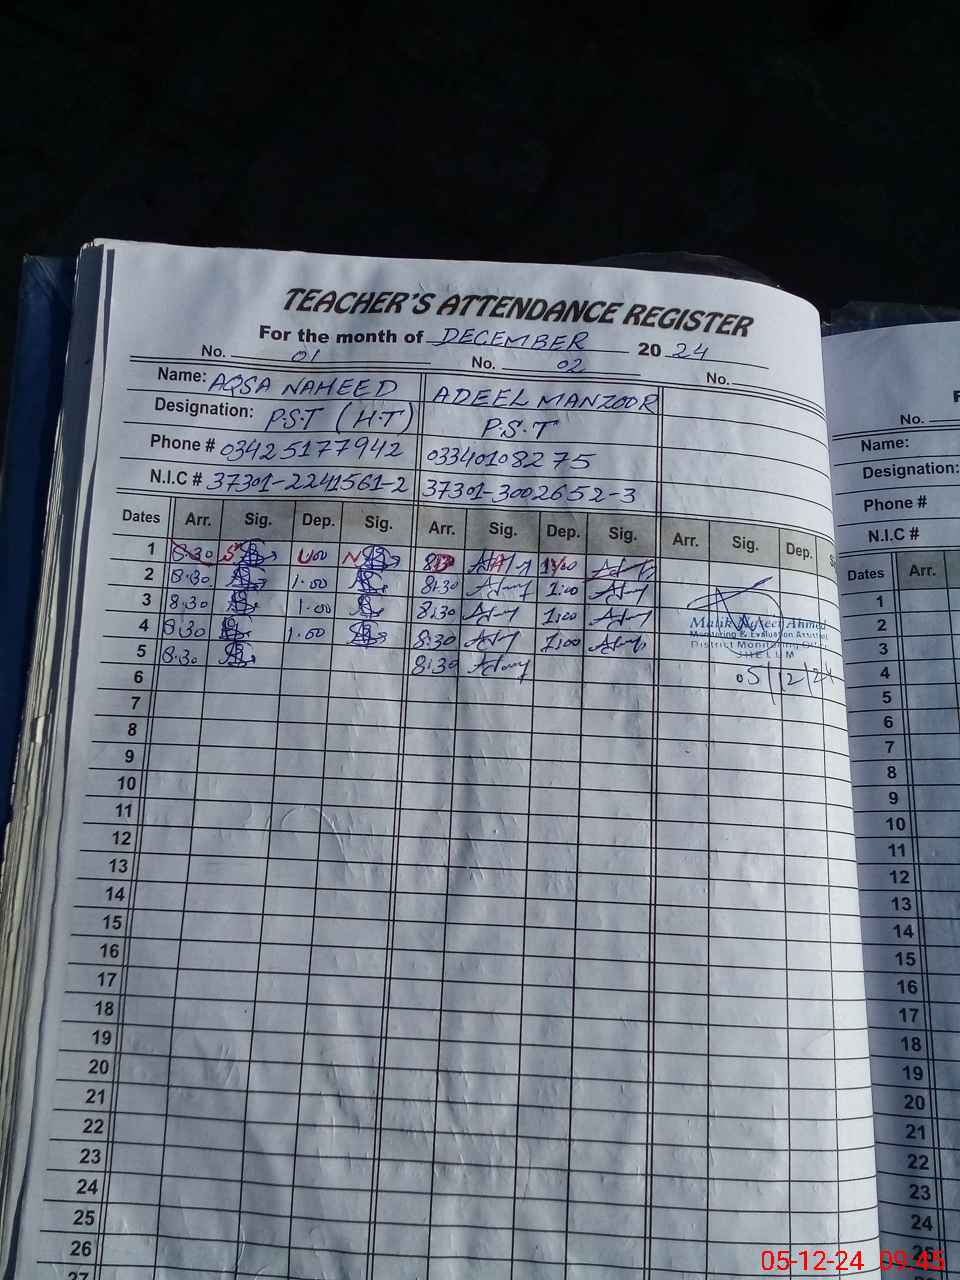 TEACHER'S ATTENDANCE REGISTER
For the month of DECEMBER 2024
No. 01 No. 02 No.
Name: AQSA NAHEED ADEEL MANZOOR
Designation: P.S.T (H.T) P.S.T
Phone # 03425177942 03340108275
N.I.C # 37301-2241561-2 37301-3002652-3
Dates Arr. Sig. Dep. Sig. Arr. Sig. Dep. Sig. Arr. Sig. Dep. S
1 8:30 S U N A
2 8:30 1:00 8:30 1:00
3 8:30 1:00 8:30 1:00
4 8:30 1:00 8:30 1:00
5 8:30 8:30
Malik Ahmed
Monitoring & Evaluation Assistant
District Monitoring
JHELUM
05/12/24
6
7
8
9
10
11
12
13
14
15
16
17
18
19
20
21
22
23
24
25
26
27
No.
Name:
Designation:
Phone #
N.I.C #
Dates Arr.
1
2
3
4
5
6
7
8
9
10
11
12
13
14
15
16
17
18
19
20
21
22
23
24
05-12-24 09:45